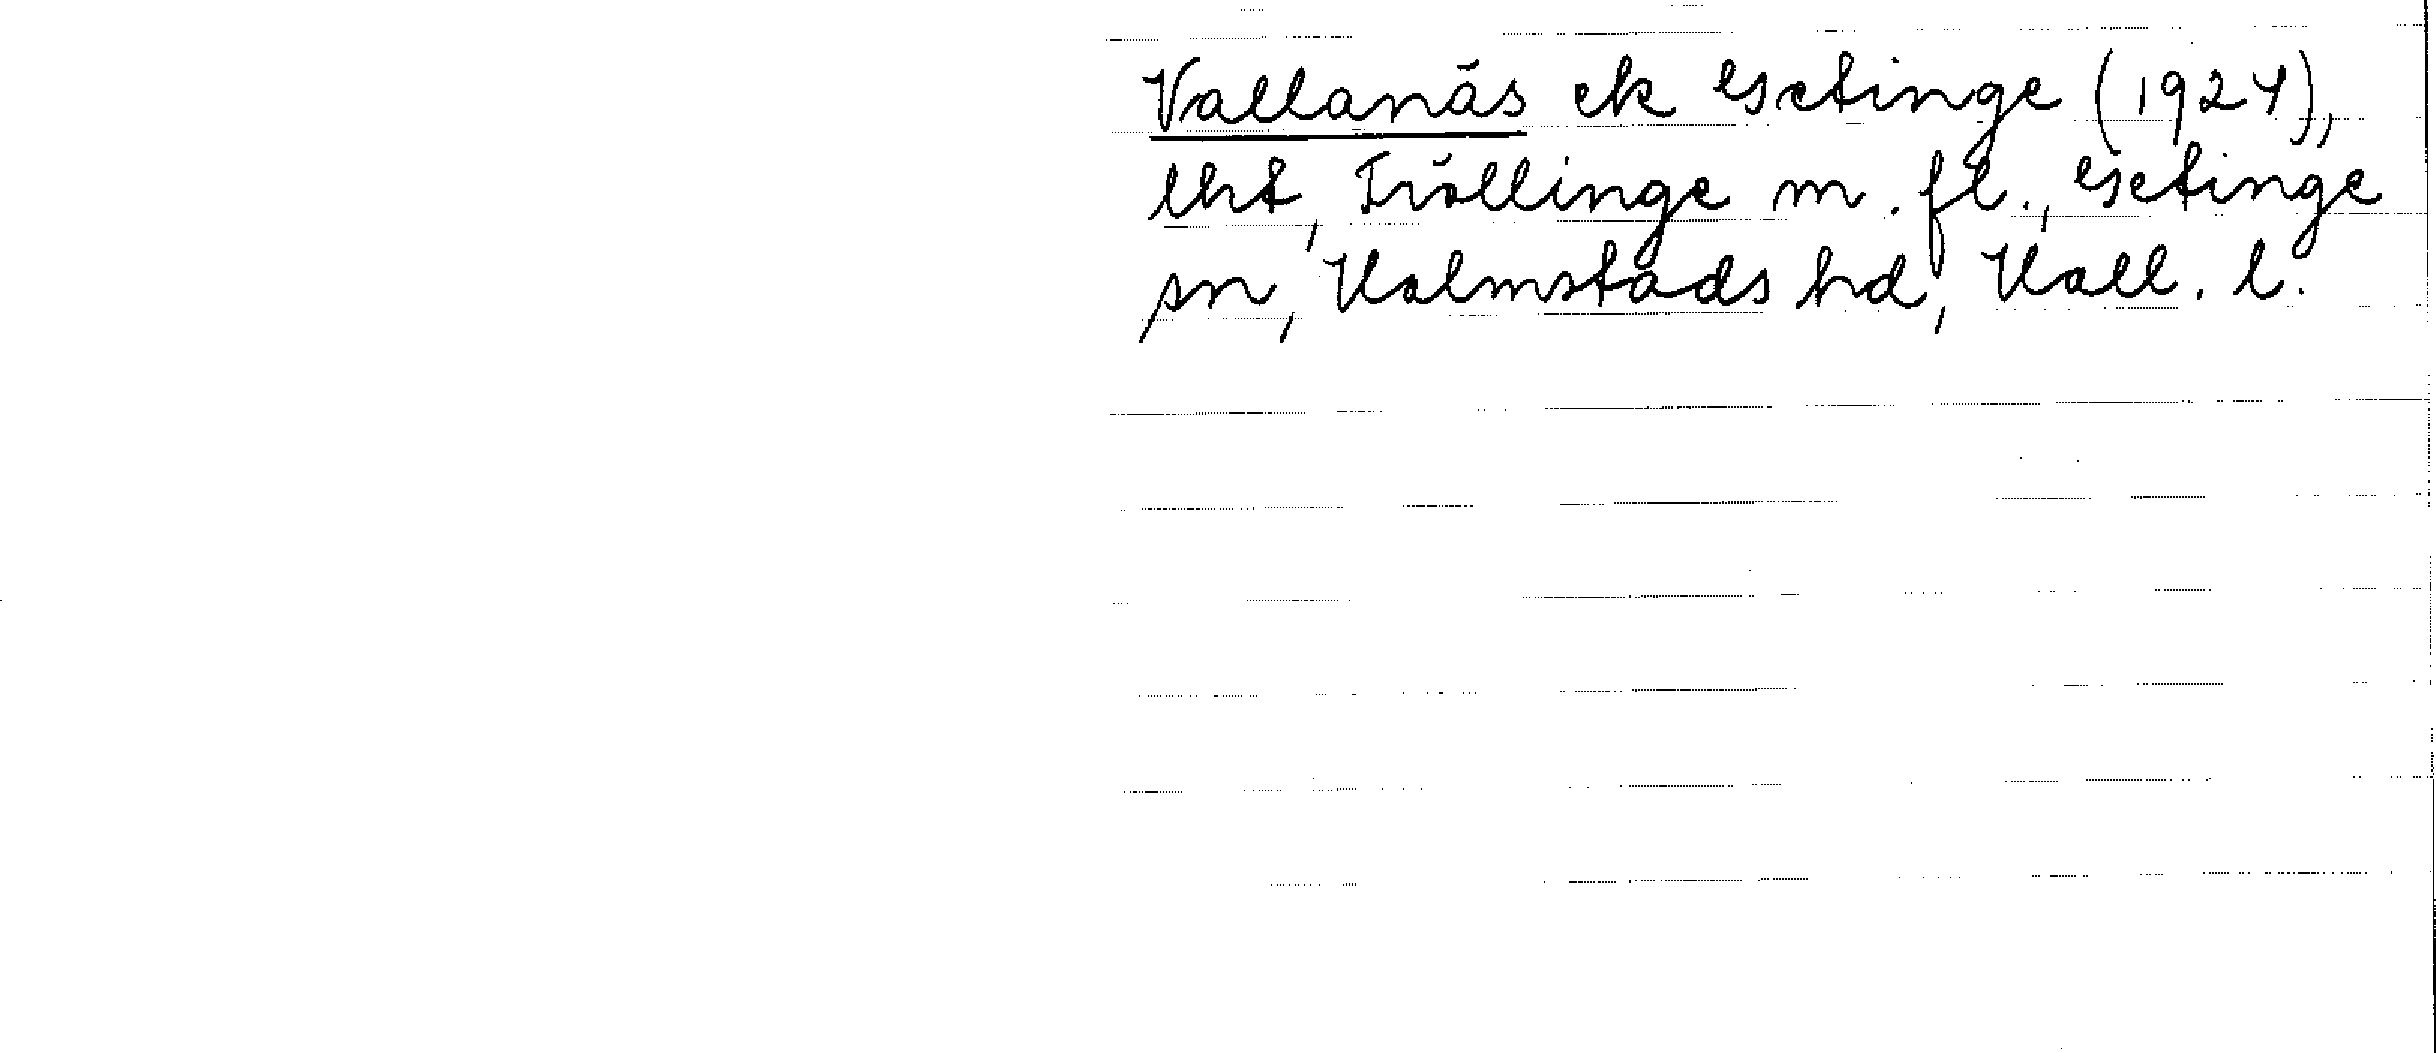 Vallanäs ek Getinge (1924),
lht, Fröllinge m. fl., Getinge
sn, Halmstads hd, Hall. l.